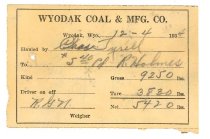 WYODAK COAL & MFG. CO.
Wyodak, Wyo., 12-4 1934
Hauled by Chas Tyrell
To 5.40 Pd R Holmes
Kind Gross 9250 lbs.
Driver on off Tare 3830 lbs.
Net 5420 lbs.
Weigher